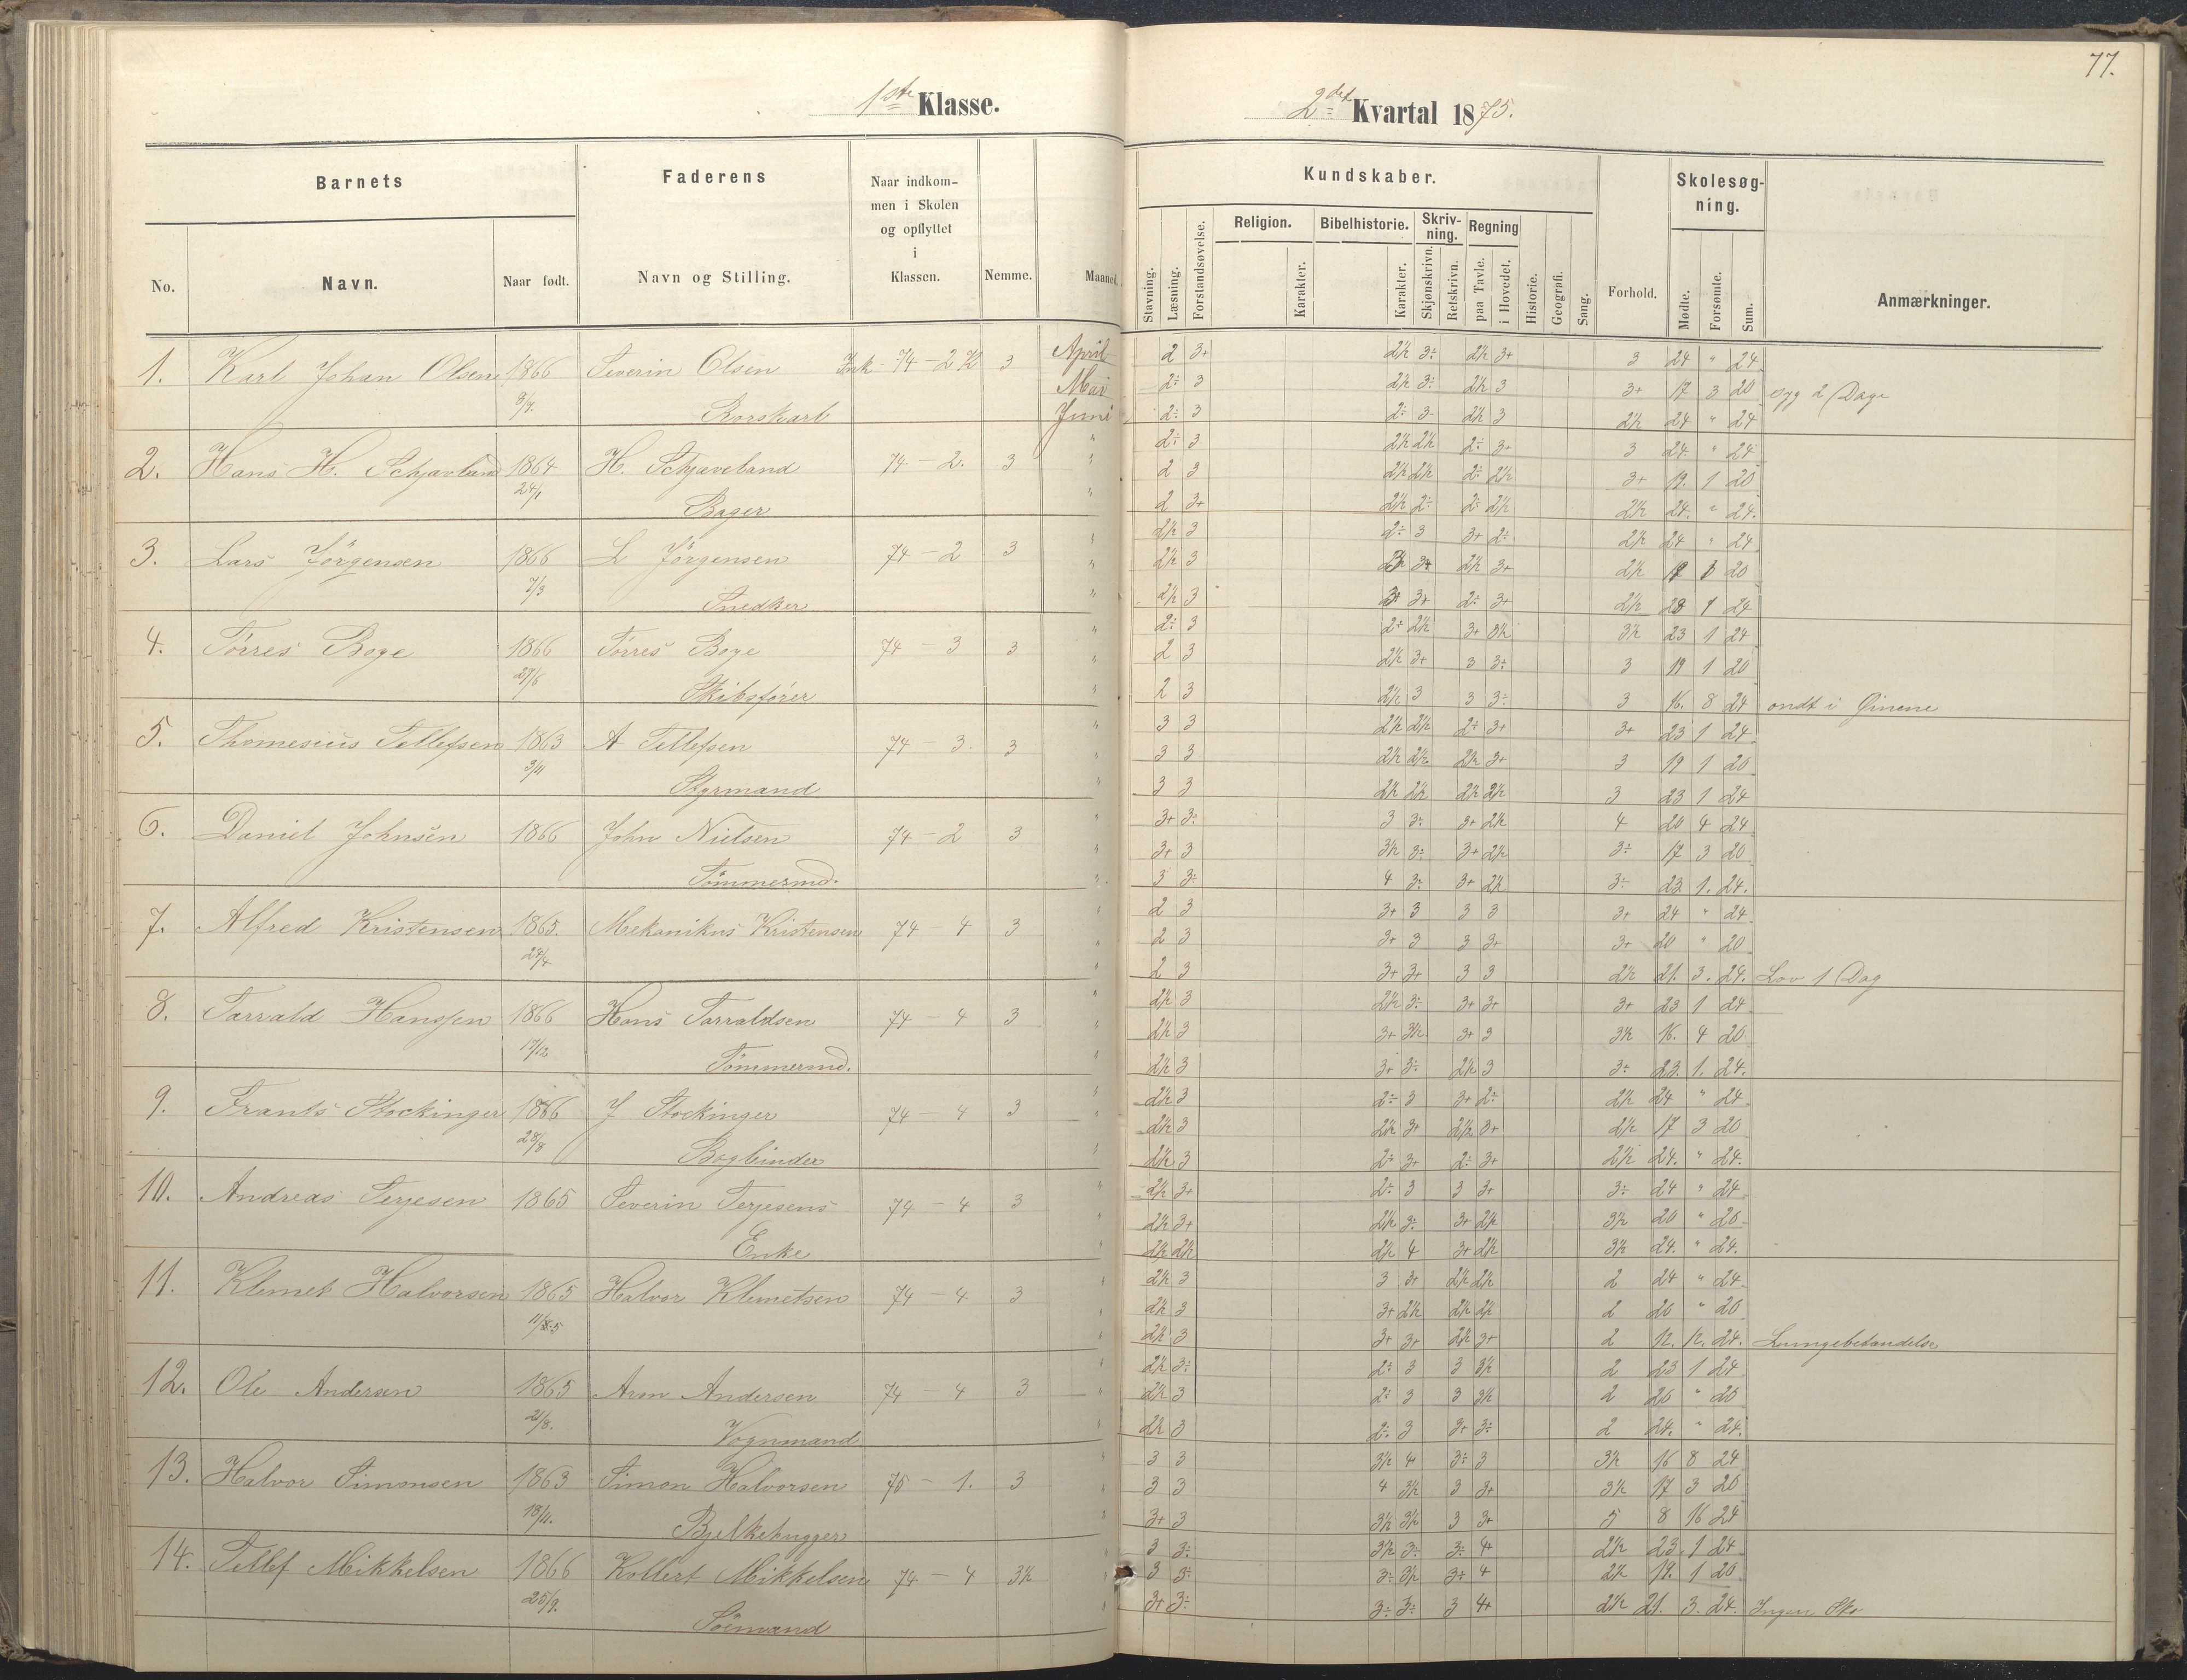 77.
1ste Klasse.
2det Kvartal 1875.
Barnets
Faderens
Naar indkommen i Skolen og opflyttet i Klassen.
Nemme.
Maaned.
No.
Navn.
Naar født.
Navn og Stilling.
Kundskaber.
Stavning.
Læsning.
Forstandsøvelse.
Religion.
Karakter.
Bibelhistorie.
Karakter.
Skrivning.
Skjønskrivn.
Retskrivn.
Regning
paa Tavle.
i Hovedet.
Historie.
Geografi.
Sang.
Forhold.
Skolesøgning.
Mødte.
Forsømte.
Sum.
Anmærkninger.
1. Karl Johan Olsen 1866 Severin Olsen Ink 74 - 2 K 3 April 2 3+ 2½ 3÷ 2½ 3+ 3 24 " 24
Mai 2÷ 3 2½ 3÷ 2½ 3 3+ 17 3 20 syg 2 Dage
Juni 2÷ 3 2÷ 3- 2½ 3 2½ 24 " 24
2. Hans H. Schjavland 1864 24/1 H. Schjaveland 74 - 2. 3 " 2÷ 3 2½ 2½ 2÷ 3+ 3 24. " 24
" 2 3 2½ 2½ 2÷ 2½ 3+ 19. 1 20
Bager " 2 3+ 2½ 2÷ 2÷ 2½ 2½ 24. " 24.
3. Lars Jörgensen 1866 L Jörgensen 74 - 2 3 " 2½ 3 2÷ 3 3+ 2÷ 2½ 24 " 24
" 2½ 3 3+ 2½ 3+ 2½ 20
Snedker " 2½ 3 3+ 2÷ 3+ 2½ 23 1 24
4. Törres Boge 1866 Törres Boge 74 - 3 3 " 2÷ 3 2+ 2½ 3+ 3½ 3½ 23 1 24
" 2 3 2½ 3+ 3 3÷ 3 19 1 20
Skibsfører " 2 3 2½ 3 3 3÷ 3 16. 8 24 ondt i Øinene
5. Thomesius Tellefsen 1863 3/11 A Tellefsen 74 - 3. 3 " 3 3 2½ 2½ 2÷ 3+ 3+ 23 1 24
" 3 3 2½ 2½ 2½ 3+ 3 19 1 20
Styrmand " 3 3 2½ 2½ 2½ 2½ 3 23 1 24
6. Daniel Johnsen 1866 John Nielsen 74 - 2 3 " 3+ 3÷ 3 3÷ 3+ 2½ 4 20 4 24
" 3+ 3 3½ 3÷ 3+ 2½ 3÷ 17 3 20
Tömmermd. " 3 3÷ 4 3÷ 3+ 2½ 3÷ 23 1. 24.
7. Alfred Kristensen 1865. 24/4 Mekanikus Kristensen 74 - 4 3 " 2 3 3+ 3 3 3 3+ 24 " 24
" 2 3 3+ 3 3 3+ 3+ 20 " 20
" 2 3 3+ 3+ 3 3 2½ 21. 3. 24. Lov 1 Dag
8. Tarrald Hanssen 1866 17/12 Hans Tarraldsen 74 - 4 3 " 2½ 3 2½ 3÷ 3+ 3+ 3+ 23 1 24
" 2½ 3 3+ 3½ 3+ 3 3½ 16. 4 20
Tömmermd. " 2½ 3 3+ 3÷ 2½ 3 3÷ 23. 1. 24.
9. Frants Stockinger 1866 28/8 J Stockinger 74 4 3 " 2½ 3 2÷ 3 3+ 2÷ 2½ 24 " 24
" 2½ 3 2½ 3+ 2½ 3+ 2½ 17 3 20
Bogbinder " 2½ 3 2÷ 3+ 2÷ 3+ 2½ 24. " 24.
10. Andreas Terjesen 1865 Severin Terjesens 74 - 4 3 " 2½ 3+ 2÷ 3 3 3+ 3÷ 24 " 24
" 2½ 3+ 2½ 3÷ 3+ 2½ 3½ 20 " 20
Enke " 2½ 2½ 2½ 4 3+ 2½ 3½ 24. " 24.
11. Klemet Halvorsen 1865 Halvor Klemetsen 74 - 4 3 " 2½ 3 3 3+ 2½ 2½ 2 24 " 24
" 2½ 3 3+ 2½ 2½ 2½ 2 20 " 20
" 2½ 3 3+ 3+ 2½ 3+ 2 12. 12. 24. Lungebetændelse
12. Ole Andersen 1865 21/8. Aron Andersen 74 - 4 3 " 2½ 3÷ 2÷ 3 3 3½ 2 23 1 24
" 2½ 3 2÷ 3 3 3½ 2 20 " 20
Vognmand " 2½ 3 2÷ 3 3+ 3÷ 2 24. " 24.
13. Halvor Simonsen 1863 Simon Halvorsen 75 - 1. 3 " 3 3 3½ 4 3÷ 3 3½ 16 8 24
" 3 3 4 3½ 3 3+ 3½ 17 3 20
Bjelkehugger " 3+ 3 3½ 3½ 3 3+ 5 8 16 24
14. Tellef Mikkelsen 1866 25/9. Kollert Mikkelsen 74 - 4 3½ " 3 3÷ 3½ 3÷ 3÷ 4+ 2½ 23. 1 24
" 3 3÷ 3÷ 3½ 3÷ 4 2½ 19. 1 20
Sömand " 3+ 3÷ 3÷ 3÷ 3 4+ 2½ 21. 3. 24. Ingen Sko